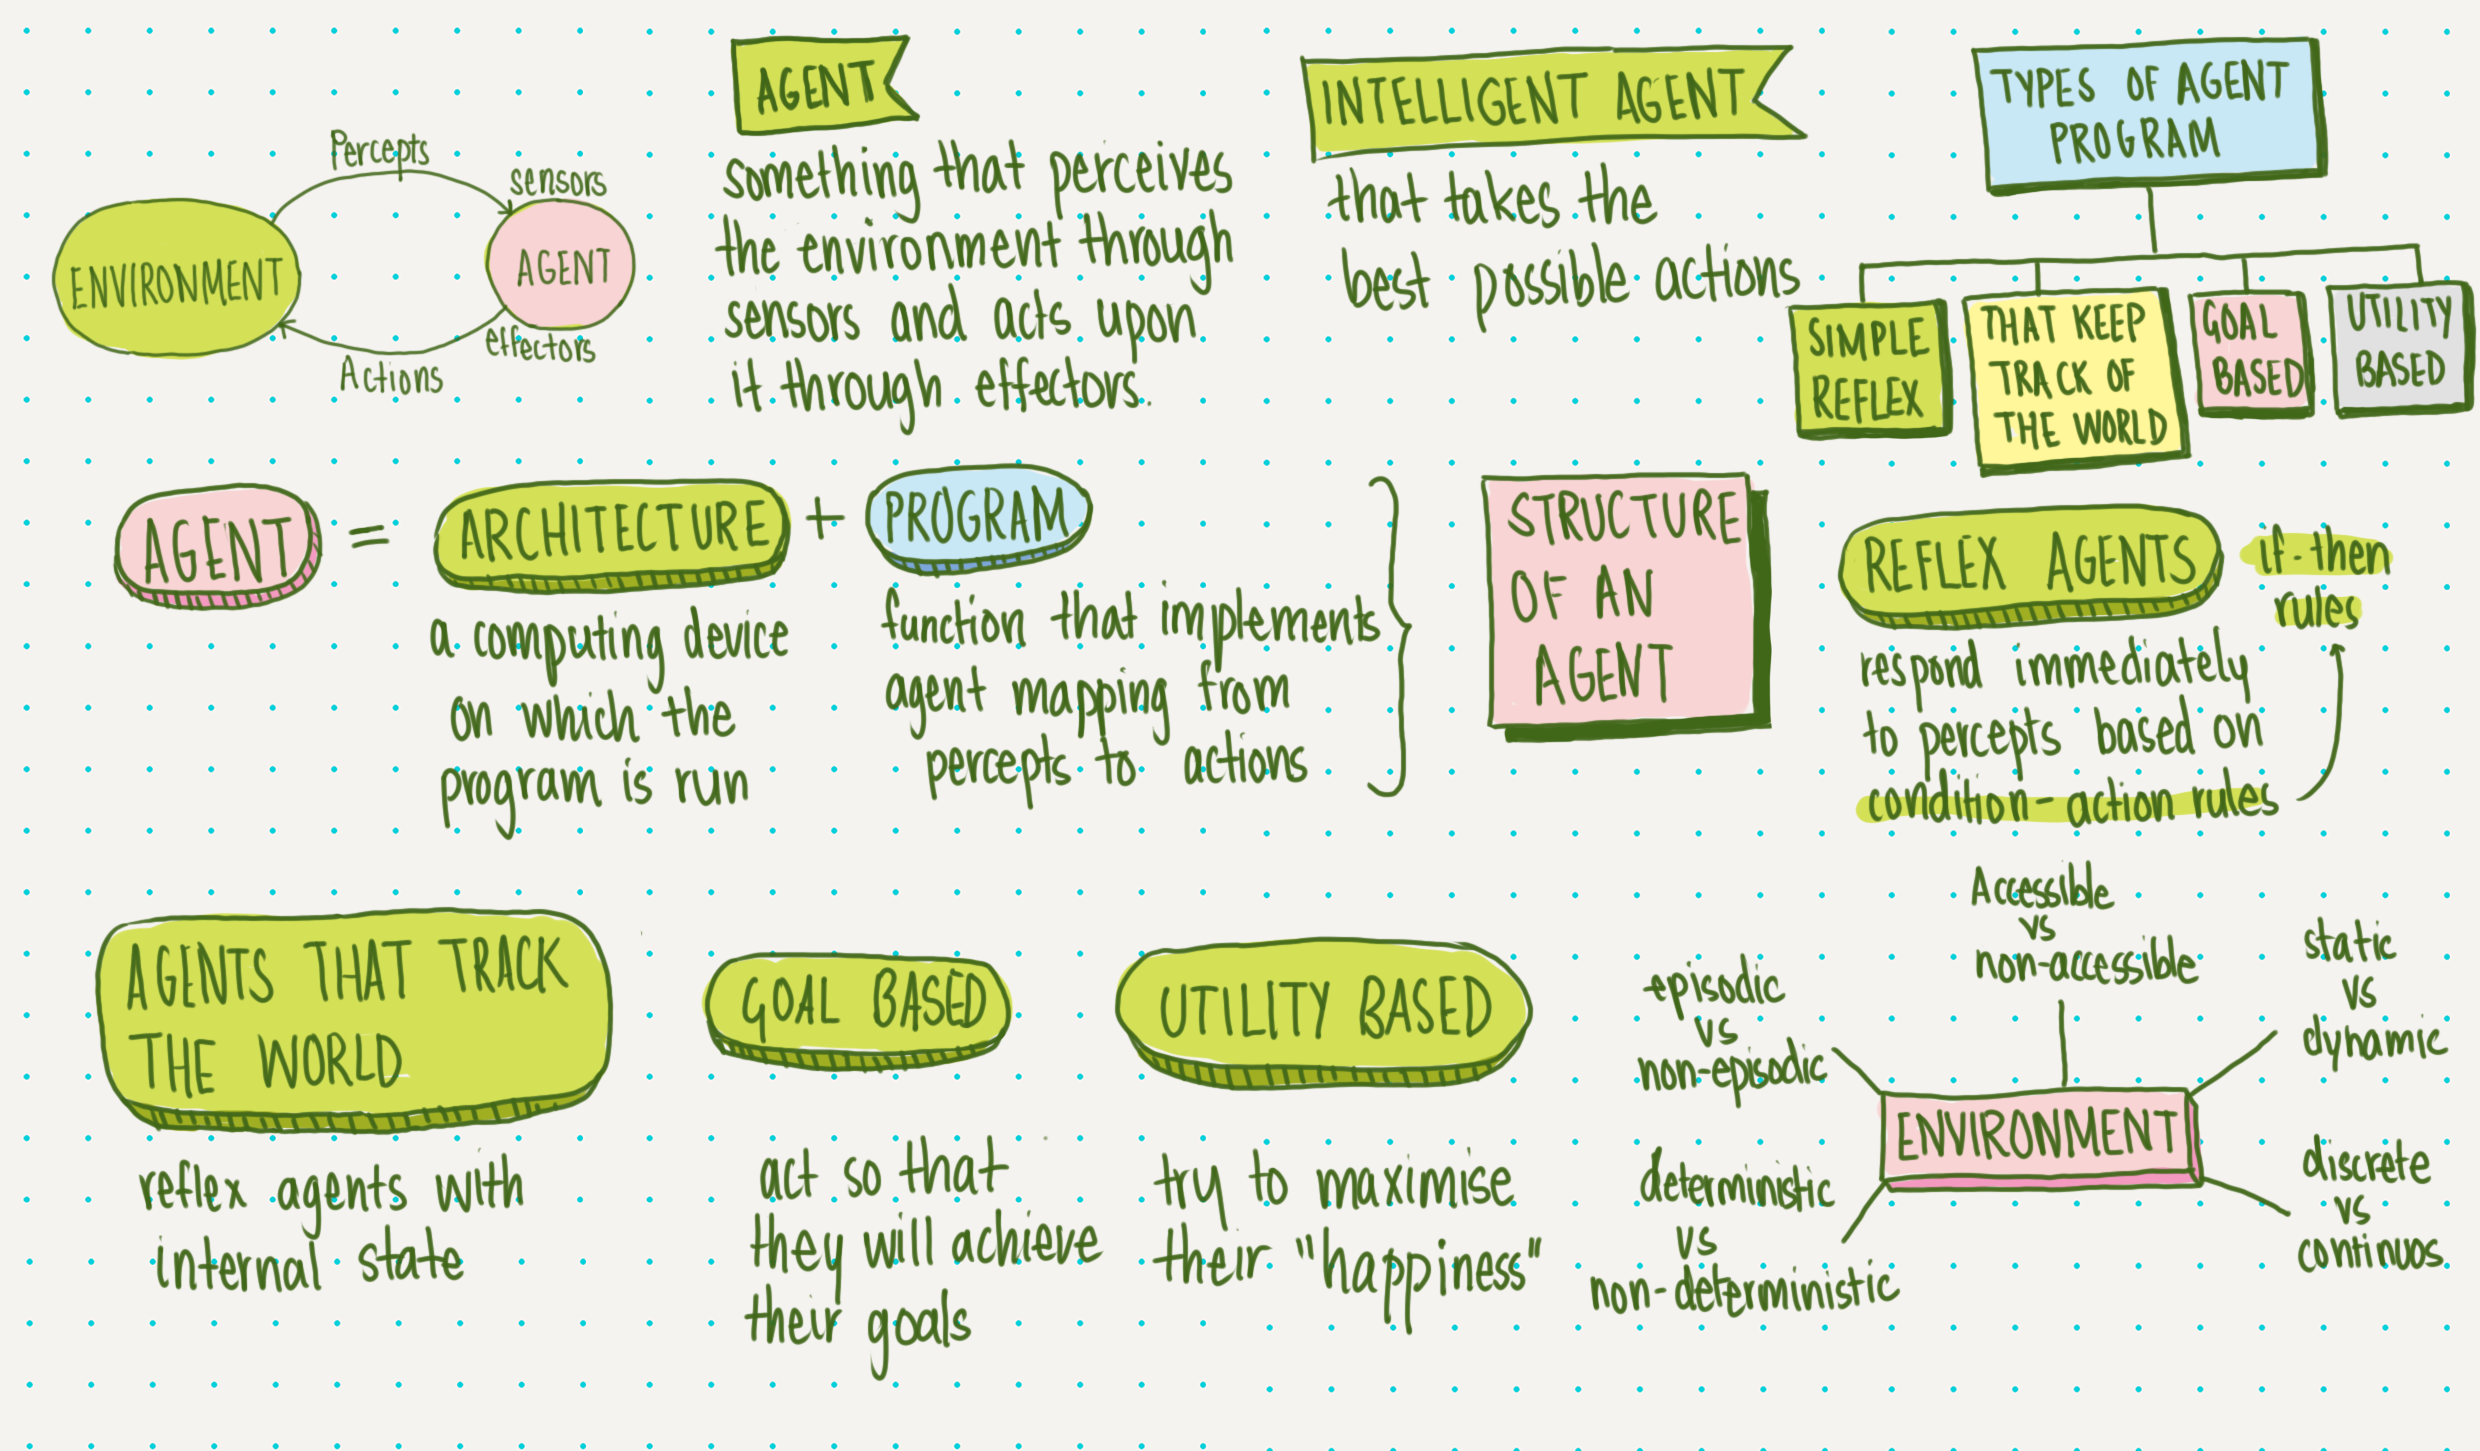 Percepts
sensors
ENVIRONMENT
AGENT
effectors
Actions
AGENT
something that perceives
the environment through
sensors and acts upon
it through effectors.
INTELLIGENT AGENT
that takes the
best possible actions
TYPES OF AGENT
PROGRAM
SIMPLE
REFLEX
THAT KEEP
TRACK OF
THE WORLD
GOAL
BASED
UTILITY
BASED
AGENT = ARCHITECTURE + PROGRAM
a computing device
on which the
program is run
function that implements
agent mapping from
percepts to actions
STRUCTURE
OF AN
AGENT
REFLEX AGENTS
if-then
rules
respond immediately
to percepts based on
condition-action rules
AGENTS THAT TRACK
THE WORLD
reflex agents with
internal state
GOAL BASED
act so that
they will achieve
their goals
UTILITY BASED
try to maximise
their "happiness"
Accessible
vs
non-accessible
episodic
vs
non-episodic
static
vs
dynamic
ENVIRONMENT
deterministic
vs
non-deterministic
discrete
vs
continuos